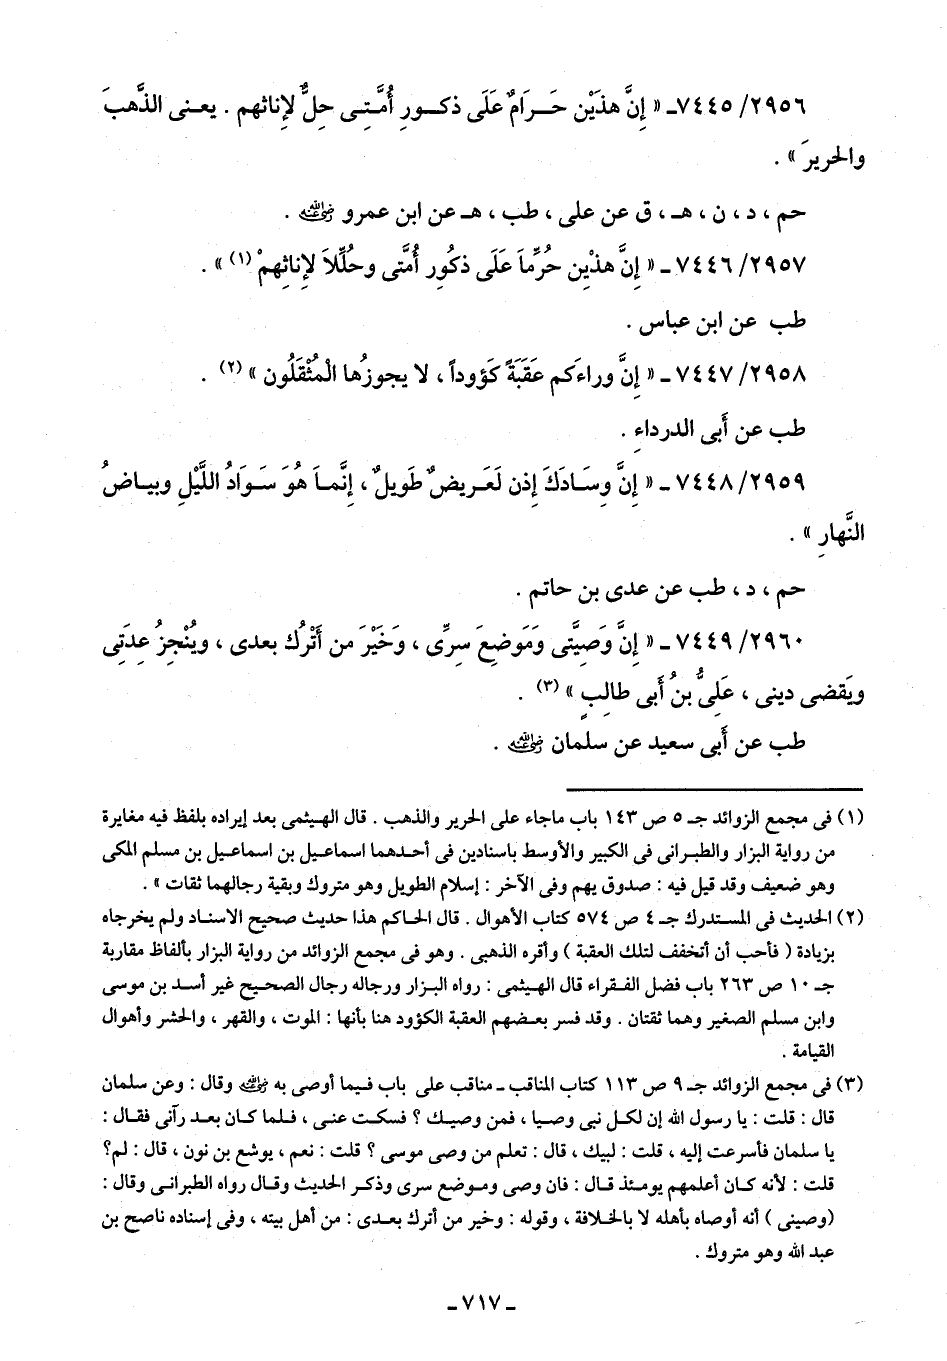 ٢٩٥٦/ ٧٤٤٥ـ « إِنَّ هذَيْن حَـرَامٌ عَلَى ذكـورِ أُمَّتِـى حِلٌّ لإِناثهم . يعنى الذَّهبَ
والحريرَ » .
حم ، د ، ن ، هـ ، ق عن على ، طب ، هـ عن ابن عمرو ﵁ .
٢٩٥٧/ ٧٤٤٦ ـ « إِنَّ هذْين حُرِّمَا عَلَى ذكُورِ أُمَّتى وحُلِّلاَ لإِناثِهمْ (١) » .
طب عن ابن عباس .
٢٩٥٨/ ٧٤٤٧ ـ « إِنَّ وراءَكم عقَبَةً كَؤوداً ، لا يجوزُها الْمُثْقَلُون » (٢) .
طب عن أَبى الدرداءِ .
٢٩٥٩/ ٧٤٤٨ ـ « إِنَّ وِسَـادَكَ إِذن لَعَـريضٌ طَويلٌ ، إِنَّمـاَ هُوَ سَـوَادُ اللَّيْلِ وبياضُ
النَّهارِ » .
حم ، د ، طب عن عدى بن حاتم .
٢٩٦٠/ ٧٤٤٩ ـ « إِنَّ وَصِيَّتِى وَمَوضِعَ سِرِّى ، وَخَيْرَ من أَتْرُك بعدى ، ويُنْجِزُ عِدَتِى
ويَقضى دينى ، عَلِىُّ بنُ أَبى طالبٍ » (٣) .
طب عن أَبى سعيد عن سلمان ﵁ .
(١) فى مجمع الزوائد جـ ٥ ص ١٤٣ باب ماجاء على الحرير والذهب . قال الهيثمى بعد إيراده بلفظ فيه مغايرة
من رواية البزار والطبرانى فى الكبير والأوسط باسنادين فى أحدهما اسماعيل بن اسماعيل بن مسلم المكى
وهو ضعيف وقد قيل فيه : صدوق يهم وفى الآخر : إسلام الطويل وهو متروك وبقية رجالهما ثقات » .
(٢) الحديث فى المستدرك جـ ٤ ص ٥٧٤ كتاب الأهوال . قال الحاكم هذا حديث صحيح الاسناد ولم يخرجاه
بزيادة ( فأحب أن أتخفف لتلك العقبة ) وأقره الذهبى . وهو فى مجمع الزوائد من رواية البزار بألفاظ مقاربة
جـ ١٠ ص ٢٦٣ باب فضل الفقراء قال الهيثمى : رواه البزار ورجاله رجال الصحيح غير أسد بن موسى
وابن مسلم الصغير وهما ثقتان . وقد فسر بعضهم العقبة الكؤود هنا بأنها : الموت ، والقهر ، والحشر وأهوال
القيامة .
(٣) فى مجمع الزوائد جـ ٩ ص ١١٣ كتاب المناقب ـ مناقب على باب فيما أوصى به ﵁ وقال : وعن سلمان
قال : قلت : يا رسول الله إن لكل نبى وصيا ، فمن وصيك ؟ فسكت عنى ، فلما كان بعد رآنى فقال :
يا سلمان فأسرعت إليه ، قلت : لبيك ، قال : تعلم من وصى موسى ؟ قلت : نعم ، يوشع بن نون ، قال : لم؟
قلت : لأنه كان أعلمهم يومئذ قال : فان وصى وموضع سرى وذكر الحديث وقال رواه الطبرانى وقال :
(وصينى ) أنه أوصاه بأهله لا بالخلافة ، وقوله : وخير من أترك بعدى : من أهل بيته ، وفى إسناده ناصح بن
عبد الله وهو متروك .
ـ ٧١٧ ـ